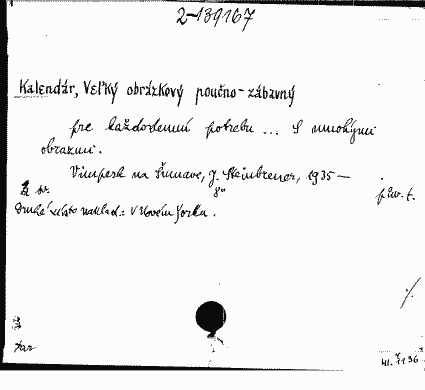 2-139167
Kalendár, Veľký obrázkový poučno-zábavný
pre každodennú potrebu ... S mnohými
obrazmi.
Vimperk na Šumave, J. Steinbrener, 1935 —
8° pův. t.
Druhé místo naklad.: V Novém Yorku.